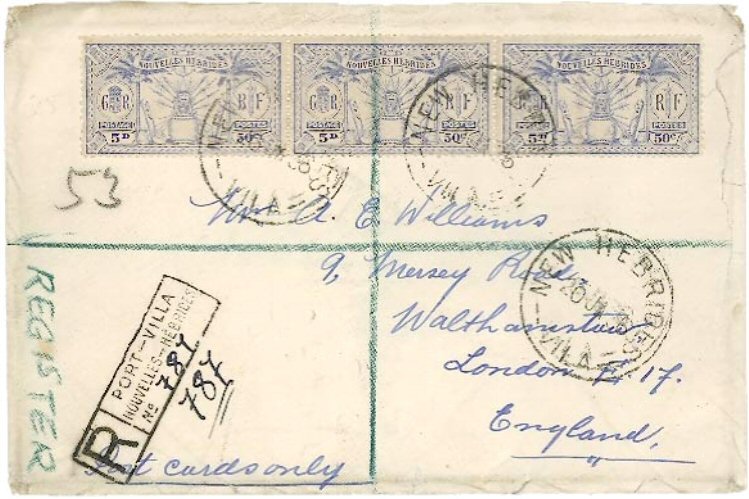 NOUVELLES HEBRIDES NOUVELLES HEBRIDES NOUVELLES HEBRIDES
G R R F G R R F R F
POSTAGE POSTES POSTAGE POSTES POSTAGE POSTES
5D 50c 5D 50c 5D 50c
NEW HEBRIDES
VILA
NEW HEBRIDES
VILA
53
A. E. Williams
9, Mersey Road,
Walthamstow
London E. 17.
England,
NEW HEBRIDES
20 JN 36
VILA
REGISTEAR
R
PORT-VILLA
NOUVELLES-HÉBRIDES
No 787
787
Post cards only